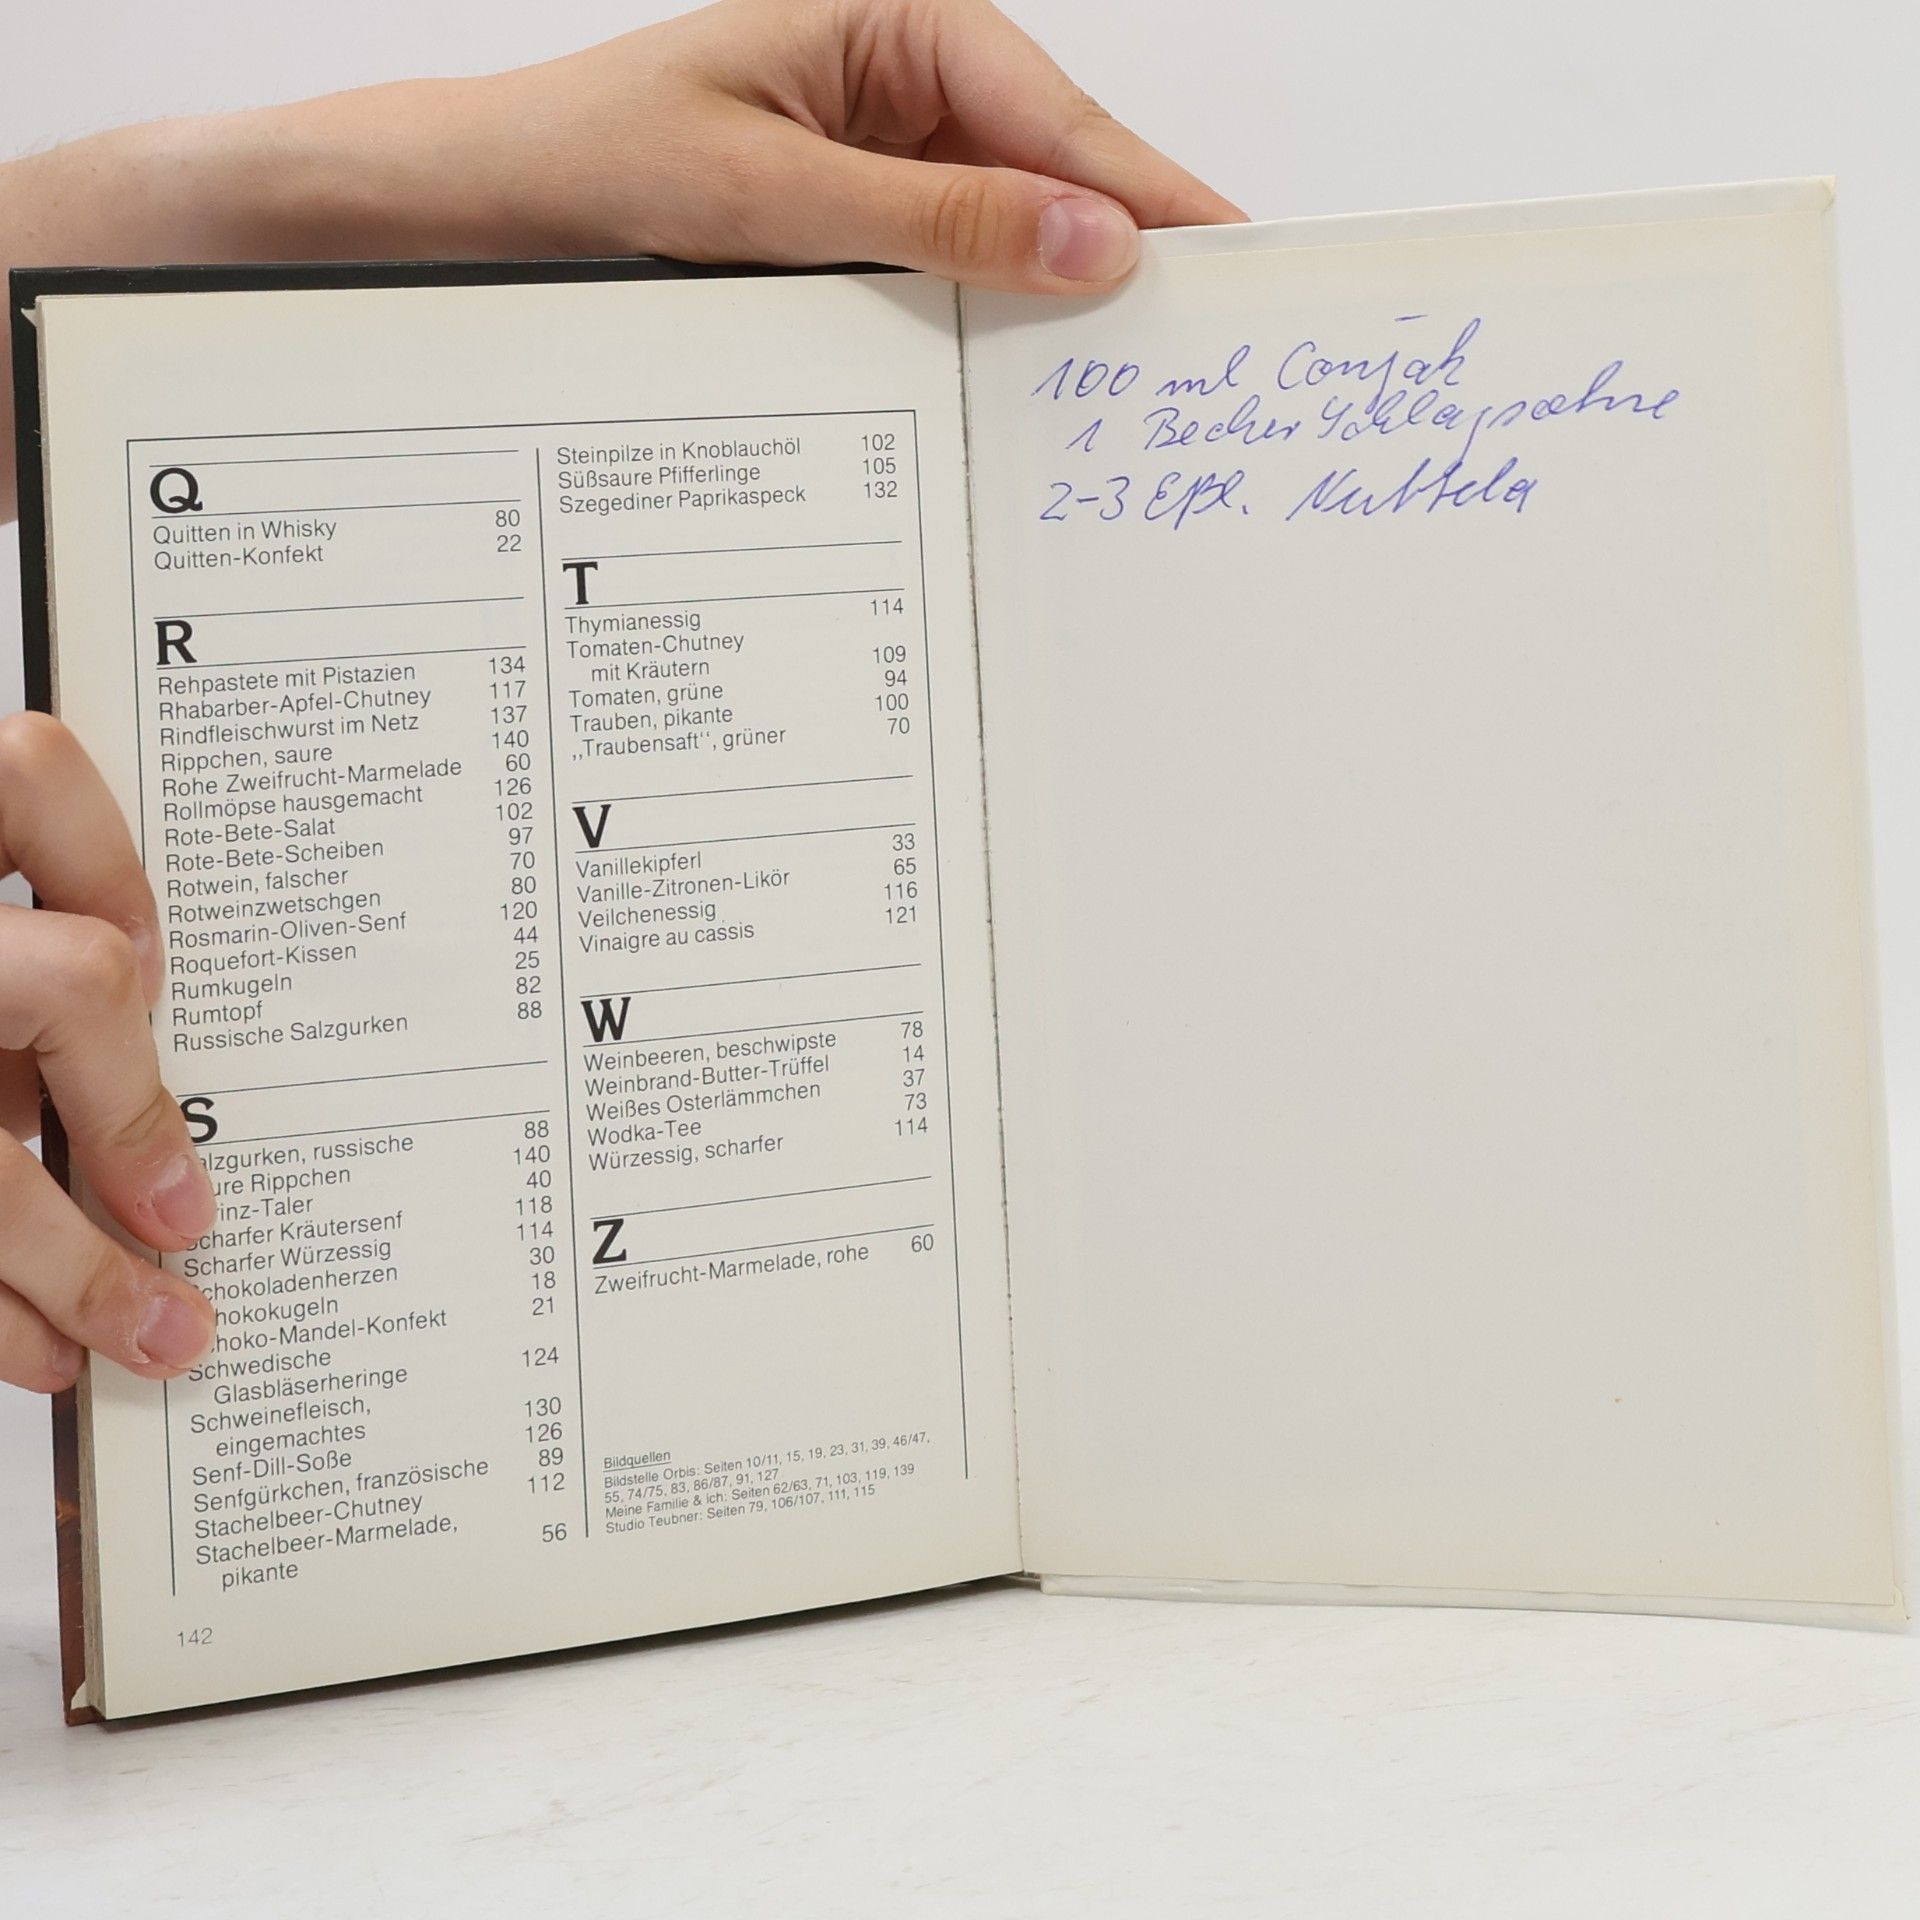 Q
Quitten in Whisky 80
Quitten-Konfekt 22
R
Rehpastete mit Pistazien 134
Rhabarber-Apfel-Chutney 117
Rindfleischwurst im Netz 137
Rippchen, saure 140
Rohe Zweifrucht-Marmelade 60
Rollmöpse hausgemacht 126
Rote-Bete-Salat 102
Rote-Bete-Scheiben 97
Rotwein, falscher 70
Rotweinzwetschgen 80
Rosmarin-Oliven-Senf 120
Roquefort-Kissen 44
Rumkugeln 25
Rumtopf 82
Russische Salzgurken 88
S
alzgurken, russische 88
ure Rippchen 140
rinz-Taler 40
Scharfer Kräutersenf 118
Scharfer Würzessig 114
chokoladenherzen 30
hokokugeln 18
choko-Mandel-Konfekt 21
Schwedische
Glasbläserheringe 124
Schweinefleisch,
eingemachtes 130
Senf-Dill-Soße 126
Senfgürkchen, französische 89
Stachelbeer-Chutney 112
Stachelbeer-Marmelade,
pikante 56
142
Steinpilze in Knoblauchöl 102
Süßsaure Pfifferlinge 105
Szegediner Paprikaspeck 132
T
Thymianessig 114
Tomaten-Chutney
mit Kräutern 109
Tomaten, grüne 94
Trauben, pikante 100
„Traubensaft“, grüner 70
V
Vanillekipferl 33
Vanille-Zitronen-Likör 65
Veilchenessig 116
Vinaigre au cassis 121
W
Weinbeeren, beschwipste 78
Weinbrand-Butter-Trüffel 14
Weißes Osterlämmchen 37
Wodka-Tee 73
Würzessig, scharfer 114
Z
Zweifrucht-Marmelade, rohe 60
Bildquellen
Bildstelle Orbis: Seiten 10/11, 15, 19, 23, 31, 39, 46/47,
55, 74/75, 83, 86/87, 91, 127
Meine Familie & ich: Seiten 62/63, 71, 103, 119, 139
Studio Teubner: Seiten 79, 106/107, 111, 115
100 ml Conjak
1 Becher Schlagsahne
2-3 Eßl. Nuttela